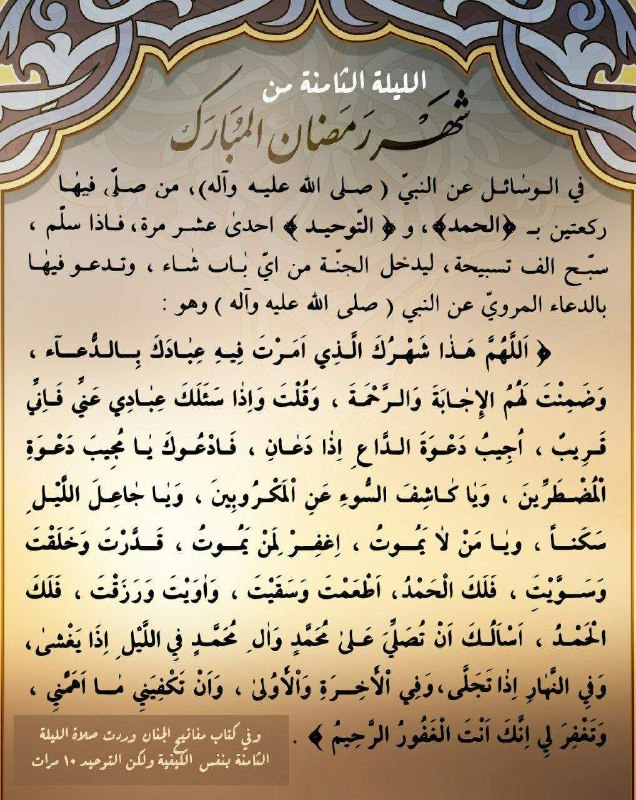 الليلة الثامنة من
شهر رمضان المبارك
في الوسائل عن النبيّ ( صلى الله عليه وآله)، من صلّى فيها
ركعتين بـ ﴿الحمد﴾، و ﴿ التّوحيد ﴾ احدىٰ عشر مرة، فاذا سلّم ،
سبّح الف تسبيحة، ليدخل الجنّة من ايّ باب شاء ، وتدعو فيها
بالدعاء المرويّ عن النبي ( صلى الله عليه وآله ) وهو :
﴿ اَللّٰهُمَّ هَذٰا شَهْرُكَ الَّذِي اَمَرْتَ فِيهِ عِبٰادَكَ بِالدُّعٰآء ،
وَضَمِنْتَ لَهُمُ الإِجٰابَةَ وَالرَّحْمَةَ ، وَقُلْتَ وَاِذٰا سَئَلَكَ عِبٰادِي عَنِّي فَاِنِّي
قَرِيبٌ ، اُجِيبُ دَعْوَةَ الدَّاعِ اِذٰا دَعٰانِ ، فَادْعُوكَ يٰا مُجِيبَ دَعْوَةِ
الْمُضْطَرِّينَ ، وَيٰا كٰاشِفَ السُّوءِ عَنِ اْلمَكْرُوبِينَ ، وَيٰا جٰاعِلَ اللَّيْلِ
سَكَناً ، ويٰا مَنْ لاٰ يَمُوتُ ، اِغفِرْ لِمَنْ يَمُوتُ ، قَدَّرْتَ وَخَلَقْتَ
وَسَوَّيْتَ ، فَلَكَ الْحَمْدُ، اَطْعَمْتَ وَسَقَيْتَ ، وَاٰوَيْتَ وَرَزَقْتَ ، فَلَكَ
الْحَمْدُ ، اَسْاَلُكَ اَنْ تُصَلِّيَ عَلىٰ مُحَمَّدٍ وَاٰلِ مُحَمَّدٍ فِي اللَّيْلِ اِذٰا يَغْشىٰ،
وَفِي النَّهٰارِ اِذٰا تَجَلَّى،وَفِي اْلأٰخِرَةِ وَاْلأُولىٰ، وَاَنْ تَكْفِيَنِي مٰا اَهَمَّنِي ،
وَتَغْفِرَ لِي اِنَّكَ اَنْتَ الْغَفُورُ الرَّحِيمُ ﴾ .
وفي كتاب مفاتيح الجنان وردت صلاة الليلة
الثامنة بنفس الكيفية ولكن التوحيد ١٠ مرات